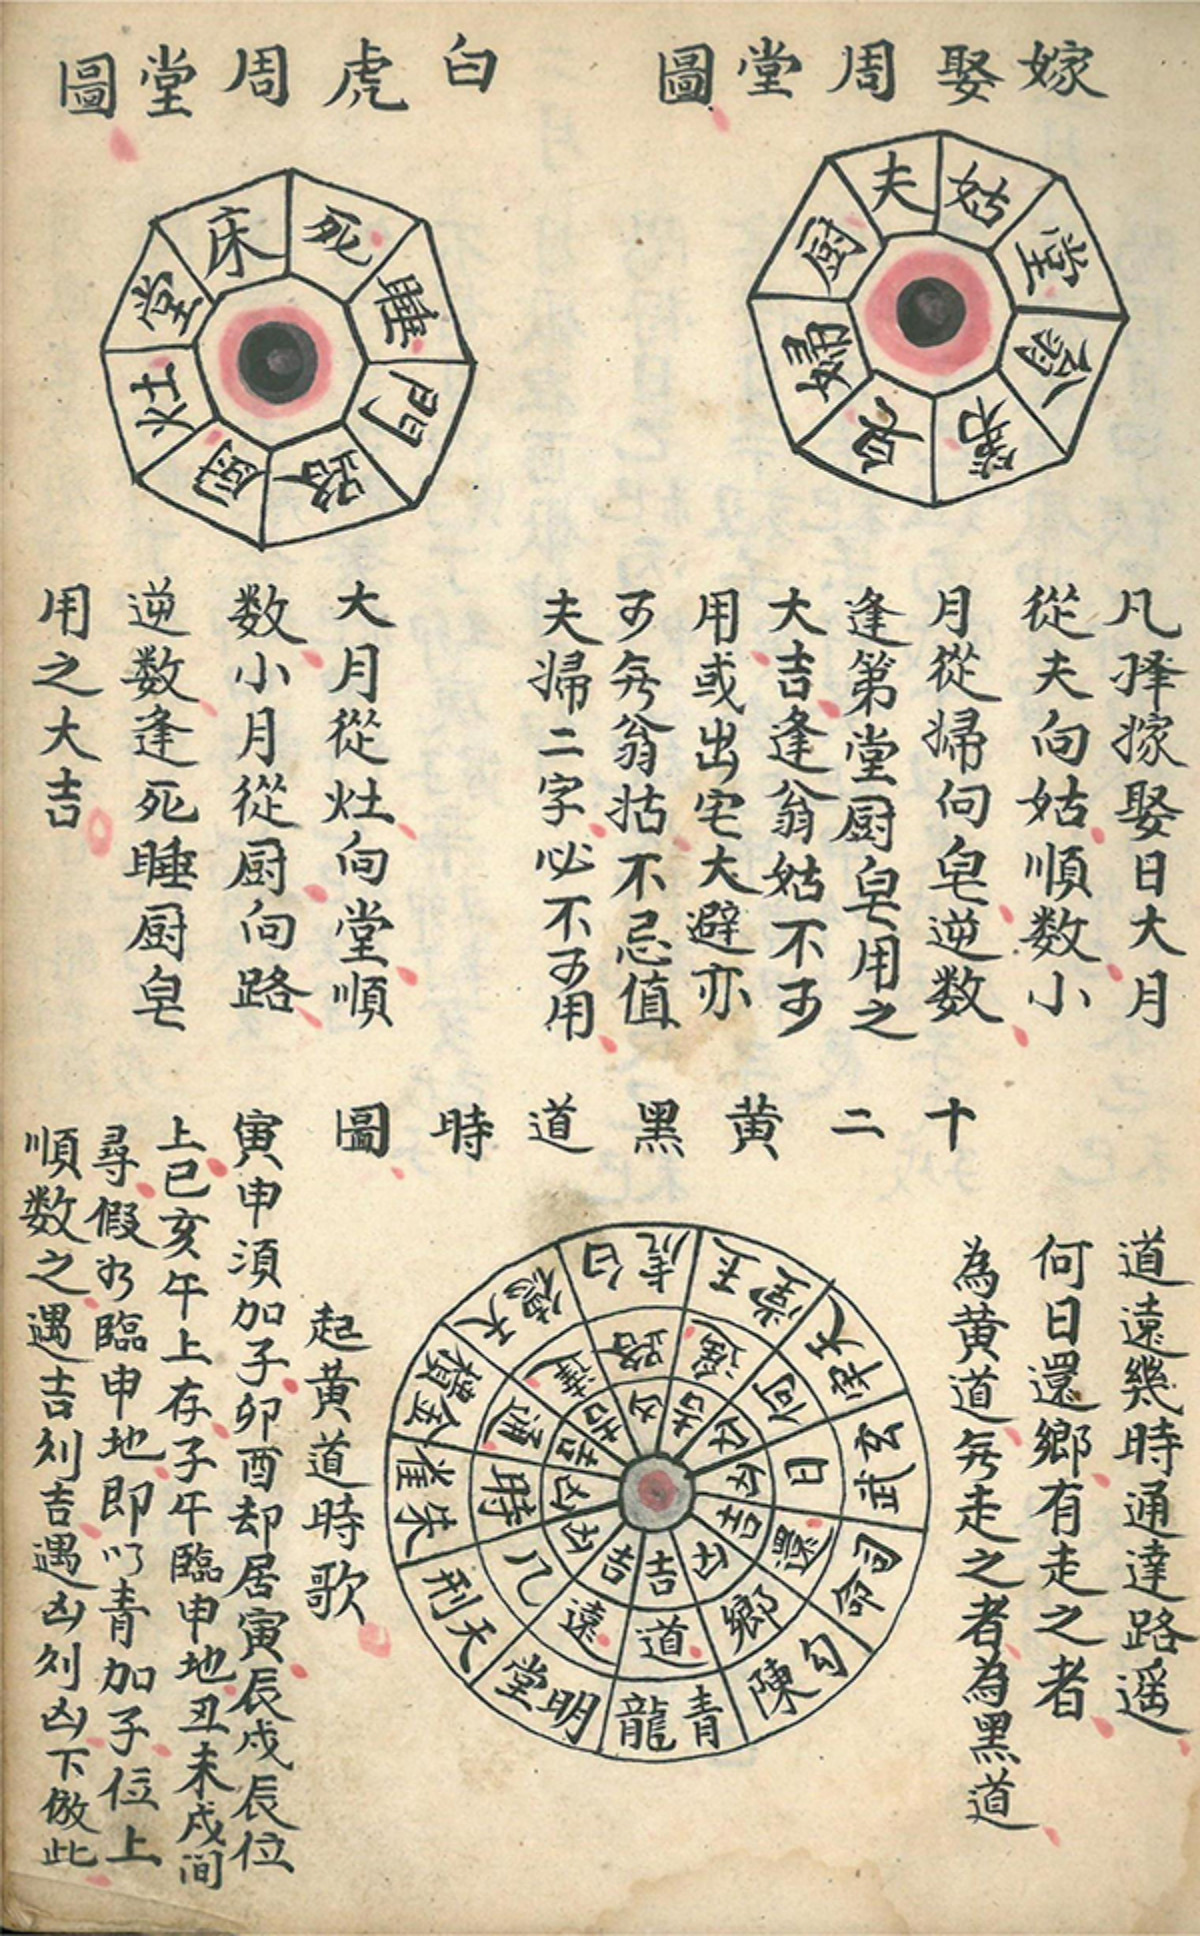 嫁娶周堂圖
夫
姑
堂
翁
第
皂
婦
厨
凡择嫁娶日大月
從夫向姑順数小
月從掃向皂逆数
逢第堂厨皂用之
大吉逢翁姑不可
用或出宅大避亦
可無翁姑不忌值
夫掃二字必不可用
白虎周堂圖
床
死
睡
門
路
厨
灶
堂
大月從灶向堂順
数小月從厨向路
逆数逢死睡厨皂
用之大吉
十二黄黑道時圖
道遠幾時通達路遥
何日還鄉有走之者
為黄道無走之者為黑道
青龍
明堂
天刑
朱雀
金櫃
天德
白虎
玉堂
天牢
玄武
司命
勾陳
道
遠
几
時
通
達
路
遥
何
日
還
鄉
吉
吉
凶
凶
吉
吉
凶
吉
凶
凶
吉
凶
起黄道時歌
寅申須加子卯酉却居寅辰戌辰位
上巳亥午上存子午臨申地丑未戌间
尋假如臨申地即以青加子位上
順数之遇吉刻吉遇凶刻凶下倣此